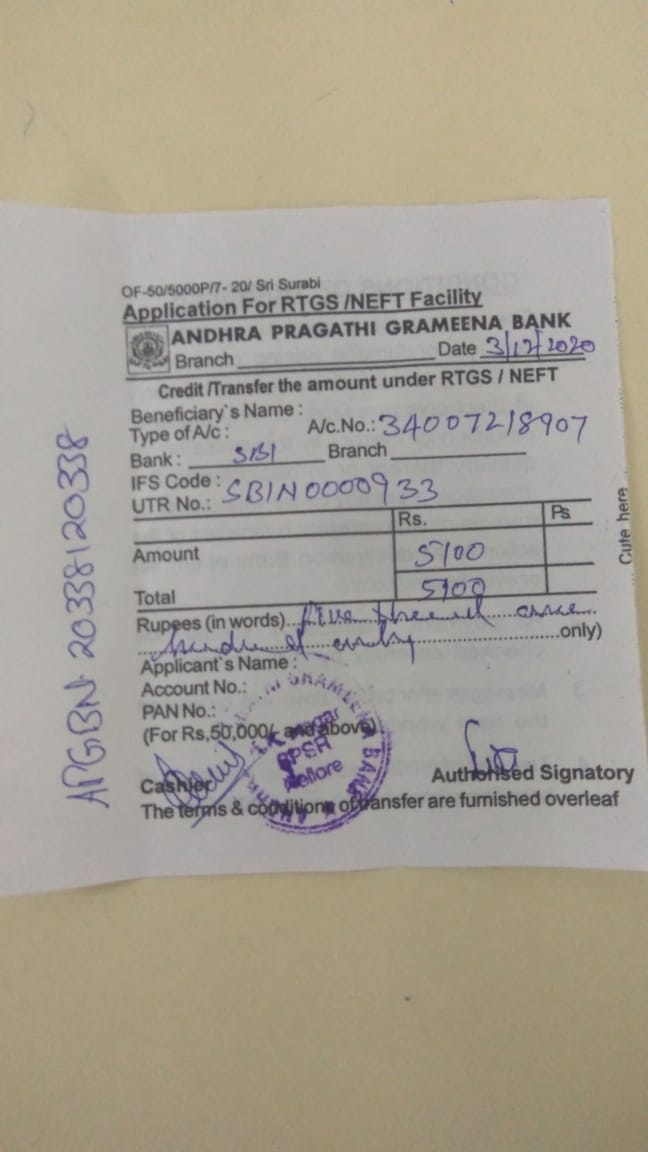 OF-50/5000P/7- 20/ Sri Surabi
Application For RTGS /NEFT Facility
ANDHRA PRAGATHI GRAMEENA BANK
Branch Date 3/12/2020
Credit /Transfer the amount under RTGS / NEFT
Beneficiary`s Name :
Type of A/c : A/c.No.: 34007218907
Bank : SBI Branch
IFS Code :
UTR No.: SBIN0000933
Rs. Ps.
Amount 5100
Total 5100
Rupees (in words) Five thousand one
hundred only only)
Applicant`s Name :
Account No.:
PAN No.:
(For Rs,50,000/- and above)
Cashier Authorised Signatory
The terms & conditions of transfer are furnished overleaf
GRAMEENA BANK
Nagar
SPSR
Nellore
Cute here
APGBN 20338120338